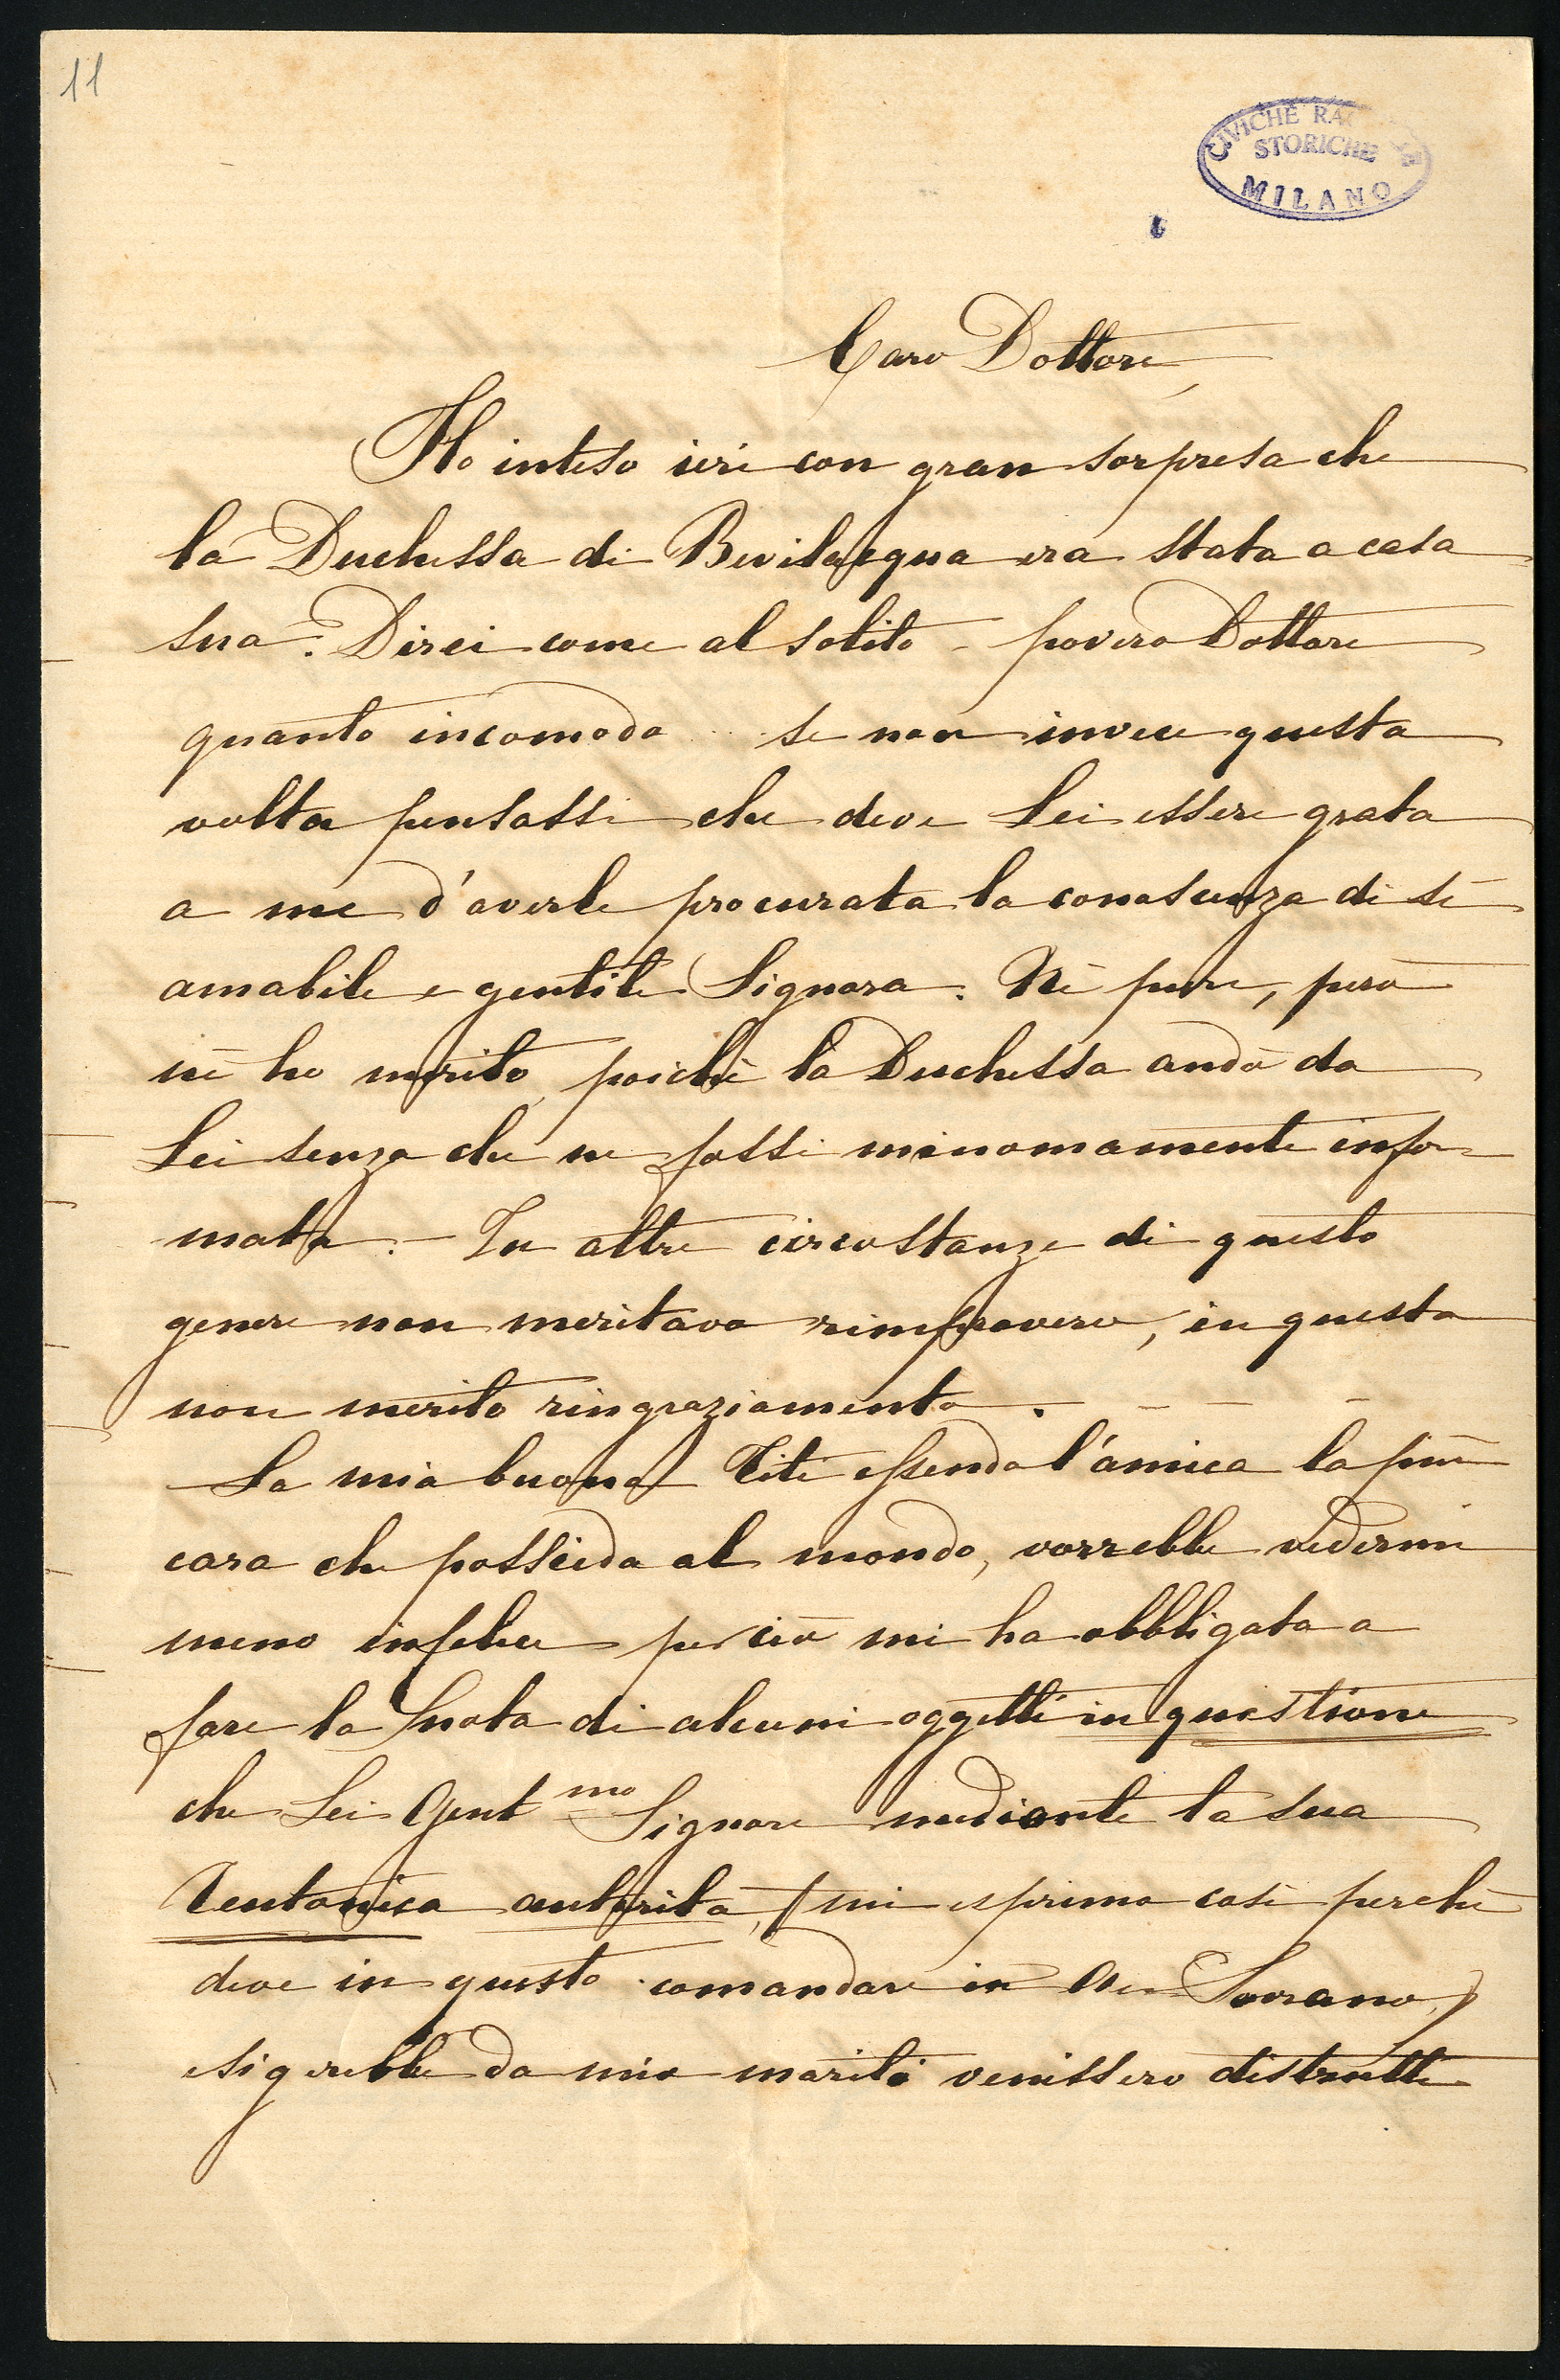 11
CIVICHE RA
STORICHE
MILANO
Caro Dottore,
Ho inteso ieri con gran sorpresa che
la Duchessa di Bevilacqua era stata a casa
sua. Direi come al solito - povero Dottore
quanto incomodo ... se non invece questa
volta pensassi che deve Lei essere grata
a me d'averle procurata la conoscenza di sì
amabile e gentile Signora. Nè pure, però
nè ho merito, poichè la Duchessa andò da
Lei senza che ne fossi minomamente infor=
mata. - In altre circostanze di questo
genere non meritavo rimprovero, in questa
non merito ringraziamento. - - - -
La mia buona Titì essendo l'amica la più
cara che possieda al mondo, vorrebbe vedermi
meno infelice perciò mi ha obbligata a
fare la nota di alcuni oggetti in questione
che Lei Gent.mo Signore mediante la sua
Teutonica autorità, (mi esprimo così perchè
deve in questo comandare in Sovrano,)
esigerebbe da mio marito venissero distrutti